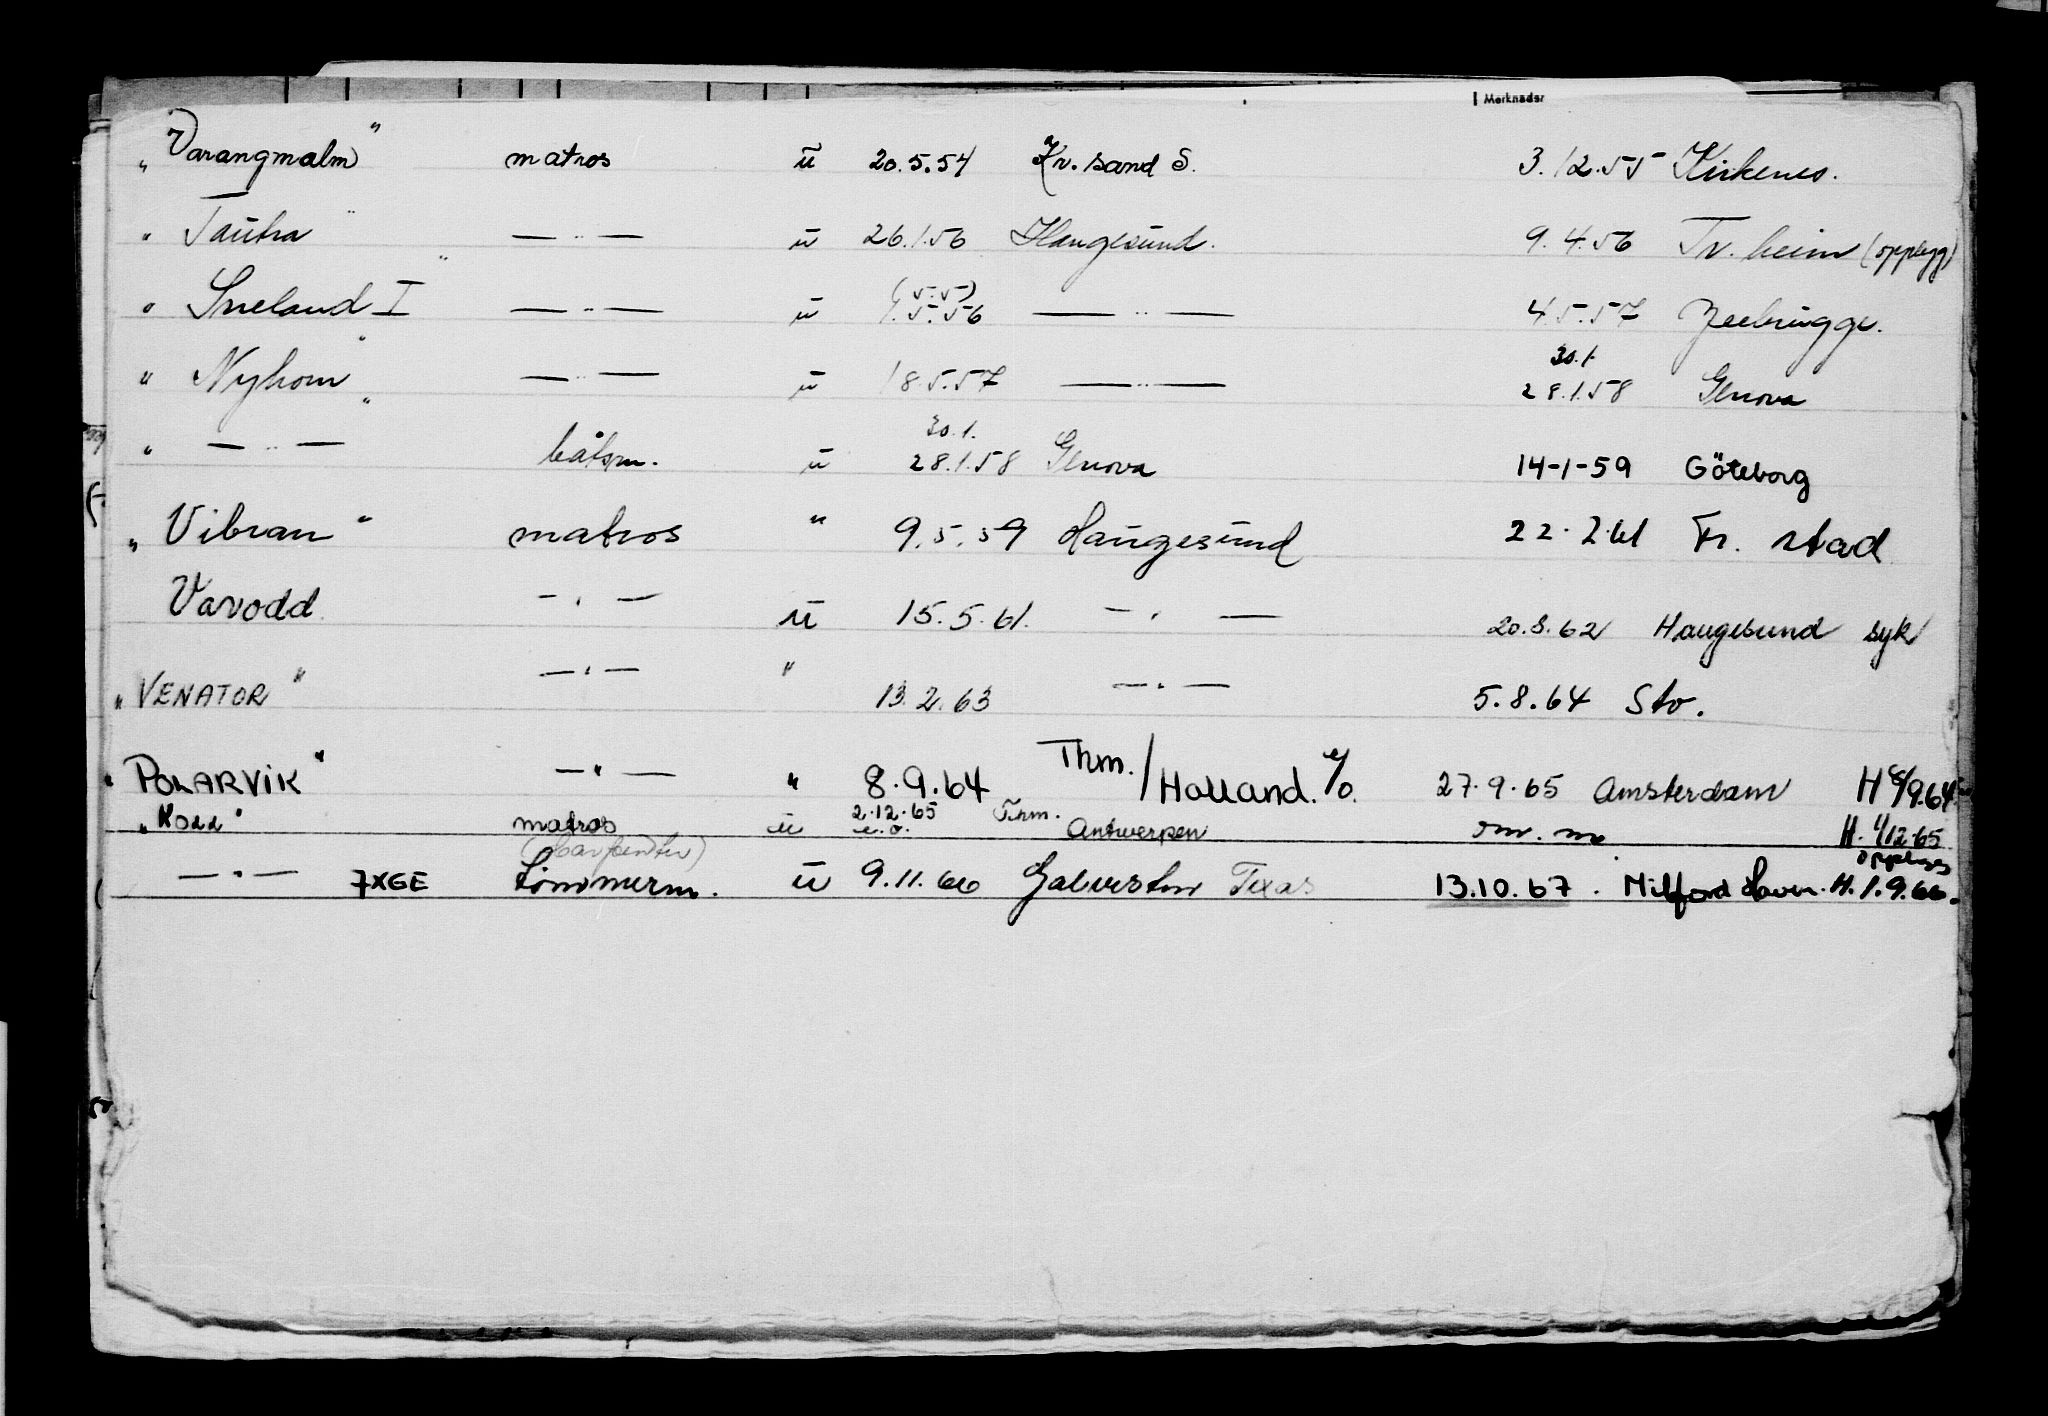 Merknader
„Varangmalm" matros u 20.5.54 Kr. sand S. 3.12.55 Kirkenes.
„Tautra" — „ — u 26.1.56 Haugesund. 9.4.56 Tr. heim (opplegg)
„Sneland I" — „ — u (5.5) 1.5.56 — „ — 4.5.57 Zeebrugge.
„Nyhorn" — „ — u 18.5.57 — „ — 30.1. 28.1.58 Genova
„ — „ — båtsm. u 30.1. 28.1.58 Genova 14-1-59 Göteborg
„Vibran" matros " 9.5.59 Haugesund 22.2.61 Fr. stad
Vavodd — „ — u 15.5.61. — „ — 20.8.62 Haugesund syk
„VENATOR" — „ — " 13.2.63 — „ — 5.8.64 Sto.
„POLARVIK" — " — " 8.9.64 Thm./Holland. e/o. 27.9.65 Amsterdam H 8/9.64
„Koll" matros u 2.12.65 e.o. Thm. Antwerpen H. 1/12.65
(Carpenter) opplegg
— „ — 7XGE tømmerm. u 9.11.66 Galveston Texas 13.10.67. Milford Haven. H. 1.9.66.